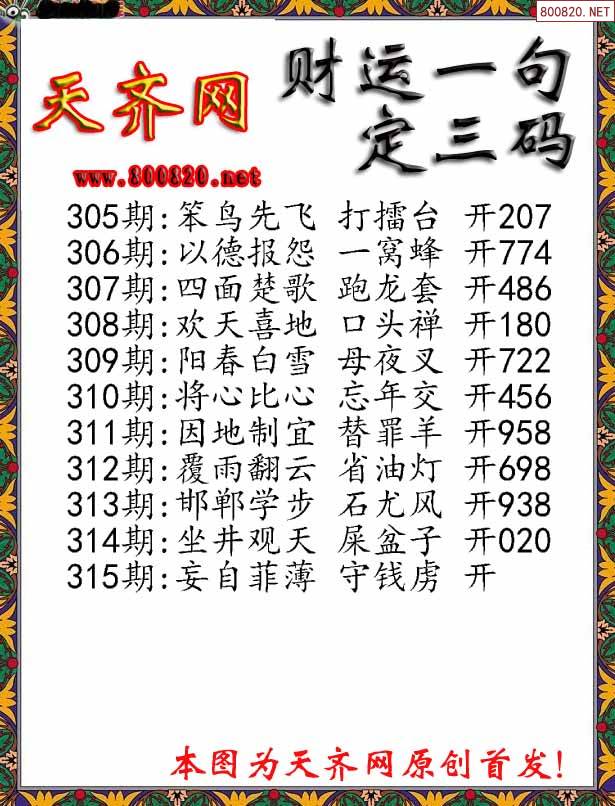 800820.NET
天齐网
财运一句
定三码
www.800820.net
305期:笨鸟先飞 打擂台 开207
306期:以德报怨 一窝蜂 开774
307期:四面楚歌 跑龙套 开486
308期:欢天喜地 口头禅 开180
309期:阳春白雪 母夜叉 开722
310期:将心比心 忘年交 开456
311期:因地制宜 替罪羊 开958
312期:覆雨翻云 省油灯 开698
313期:邯郸学步 石尤风 开938
314期:坐井观天 屎盆子 开020
315期:妄自菲薄 守钱虏 开
本图为天齐网原创首发!